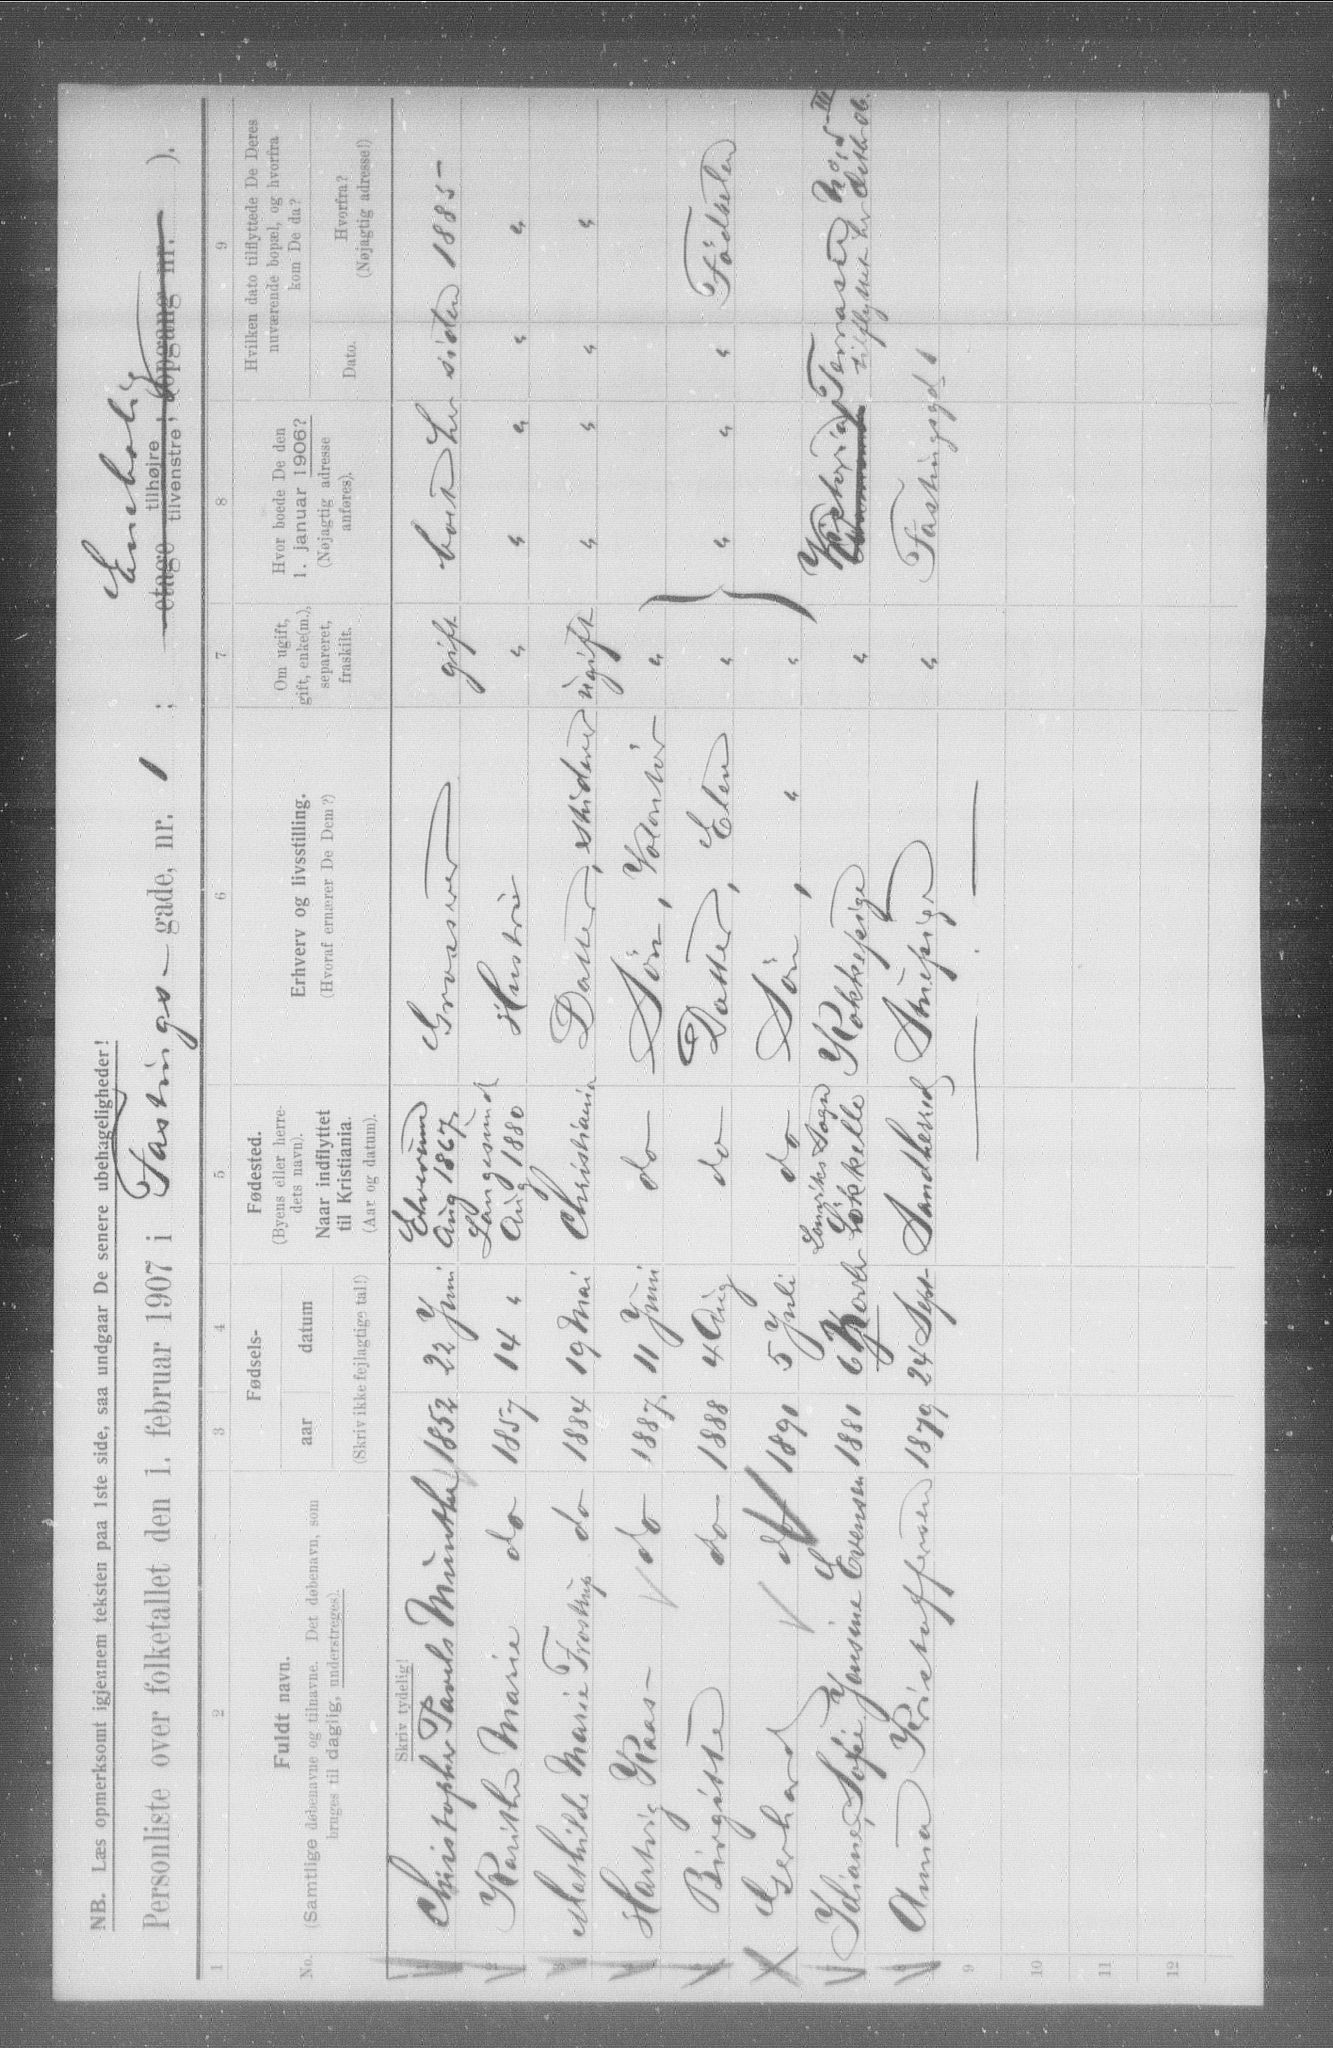 NB. Læs opmerksomt igjennem teksten paa 1ste side, saa undgaar De senere ubehageligheder!
Personliste over folketallet den 1. februar 1907 i Fastings-gade, nr. 1 ; Enebolig etage tilhøire tilvenstre, (opgang nr. ).
1 2 3 4 5 6 7 8 9
No.
Fuldt navn.
(Samtlige døbenavne og tilnavne. Det døbenavn, som
bruges til daglig, understreges).
Fødsels-
aar datum
(Skriv ikke fejlagtige tal!)
Fødested.
(Byens eller herre-
dets navn).
Naar indflyttet
til Kristiania.
(Aar og datum).
Erhverv og livsstilling.
(Hvoraf ernærer De Dem?)
Om ugift,
gift, enke(m.),
separeret,
fraskilt.
Hvor boede De den
1. januar 1906?
(Nøjagtig adresse
anføres).
Hvilken dato tilflyttede De Deres
nuværende bopæl, og hvorfra
kom De da?
Dato.
Hvorfra?
(Nøjagtig adresse!)
Skriv tydelig!
1 Christopher Pavels Munthe 1852 22 Juni Elverum Aug 1867 Grosserer gift boet her siden 1885-
2 Karithe Marie do 1857 14 " Langesund Aug 1880 Hustru " " " " "
3 Mathilde Marie Frostrup do 1884 19 Mai Christiania Datter, ugift " " " "
4 Hartvig Kaas- do 1887 11 Juni do Søn, Volontør "
5 Birgitte do 1888 4 Aug do Datter, Elev " " " " Fødselen
6 Gerhard do 1890 5 Juli do Søn, " "
7 Sofie Jensine Evensen 1880 6 Novbr Sogn Kokkepige " Victoria Terrasse
8 Anna Kristoffersen 1879 24 Sept- Sandherred Stuepige " Fastingsgd 1
9
10
11
12